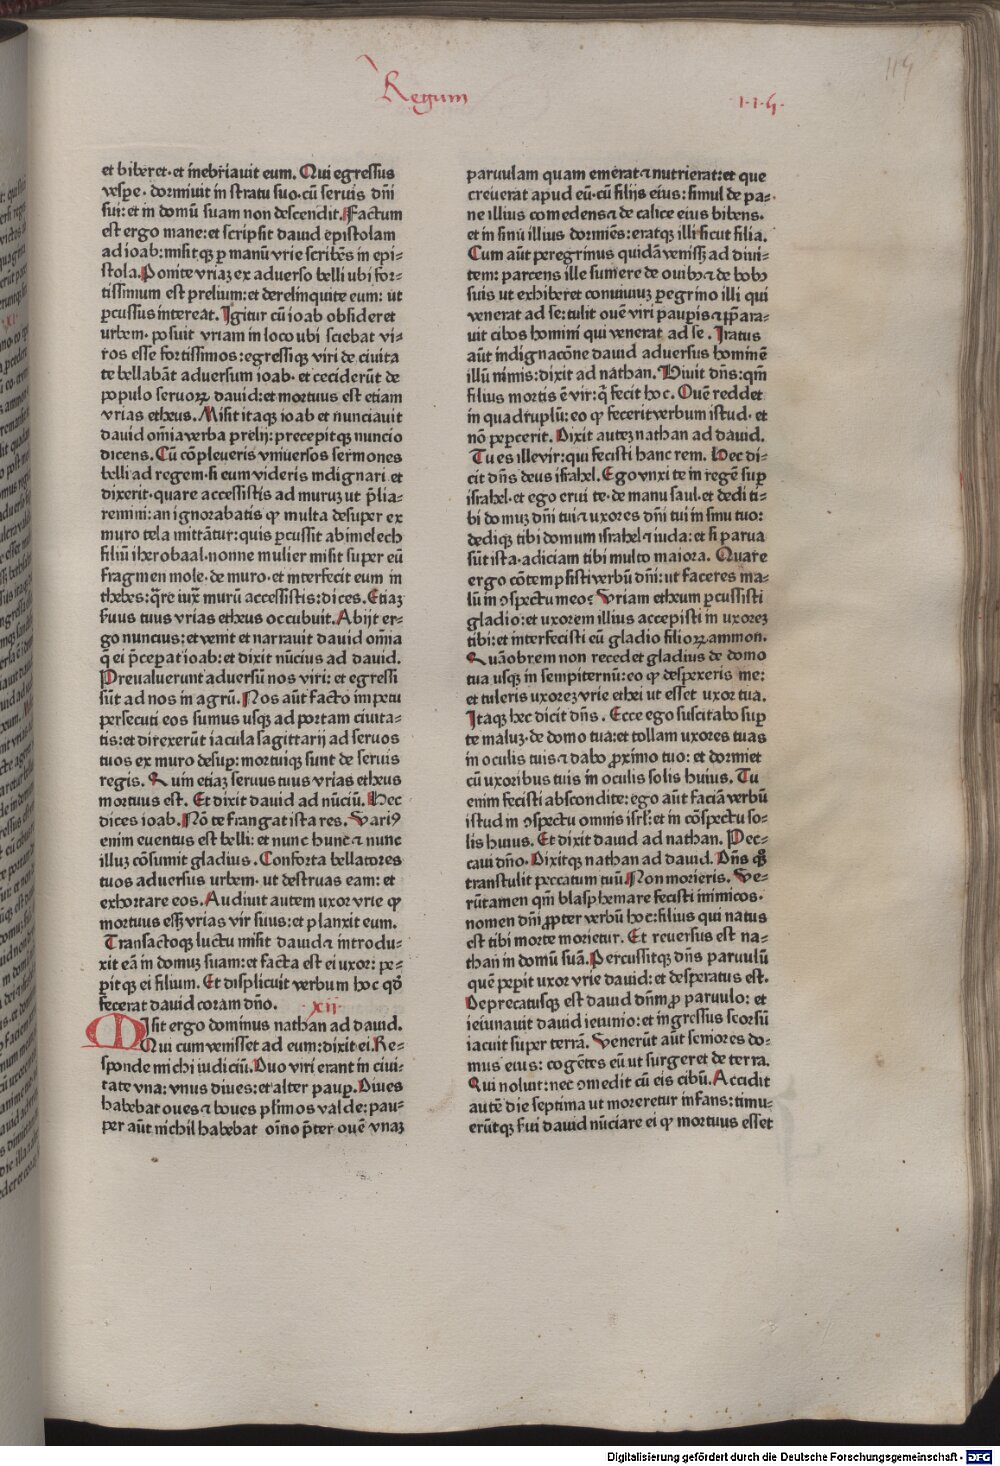 Regum
1·1·4·
114
et biberet·et inebriauit eum. Qui egressus
vespe·dormiuit in stratu suo·cū seruis dn̄i
sui:et in domū suam non descendit. Factum
est ergo mane:et scripsit dauid epistolam
ad ioab:misitqꝫ ꝑ manū vrie scribēs in epi⸗
stola. Ponite vriaꝫ ex aduerso belli ubi for⸗
tissimum est prelium:et derelinquite eum: ut
ꝑcussus intereat. Igitur cū ioab obsideret
urbem·posuit vriam in loco ubi sciebat vi⸗
ros esse fortissimos:egressiqꝫ viri de ciuita
te bellabāt aduersum ioab·et ceciderūt de
populo seruoꝝ dauid:et mortuus est etiam
vrias etheus. Misit itaqꝫ ioab et nunciauit
dauid om̄ia verba prelij:precepitqꝫ nuncio
dicens. Cū cōpleueris vniuersos sermones
belli ad regem·si eum videris indignari et
dixerit·quare accessistis ad muruꝫ ut p̄lia⸗
remini:an ignorabatis ꝙ multa desuper ex
muro tela mittātur:quis ꝑcussit abimelech
filiū iherobaal·nonne mulier misit super eū
fragmen mole·de muro·et interfecit eum in
thebes:q̄re iuxᷓ murū accessistis:dices. Etiaꝫ
seruus tuus vrias etheus occubuit. Abijt er⸗
go nuncius:et venit et narrauit dauid om̄ia
q̄ ei p̄ceperat ioab:et dixit nūcius ad dauid.
Preualuerunt aduersū nos viri: et egressi
sūt ad nos in agrū. Nos aūt facto impetu
persecuti eos sumus usqꝫ ad portam ciuita⸗
tis:et direxerūt iacula sagittarij ad seruos
tuos ex muro desuꝑ:mortuiqꝫ sunt de seruis
regis. Quin etiaꝫ seruus tuus vrias etheus
mortuus est. Et dixit dauid ad nūciū. Hec
dices ioab. Nō te frangat ista res. Variꝰ
enim euentus est belli: et nunc hunc ⁊ nunc
illuꝫ cōsumit gladius. Conforta bellatores
tuos aduersus urbem·ut destruas eam: et
exhortare eos. Audiuit autem uxor vrie ꝙ
mortuus esſꝫ vrias vir suus:et planxit eum.
Transactoqꝫ luctu misit dauid ⁊ introdu⸗
xit eā in domuꝫ suam:et facta est ei uxor: pe⸗
ꝑitqꝫ ei filium. Et displicuit verbum hoc qd̓
fecerat dauid coram dn̄o. ·xij·
MIsit ergo dominus nathan ad dauid.
Qui cum venisset ad eum:dixit ei. Re⸗
sponde michi iudiciū. Duo viri erant in ciui⸗
tate vna: vnus diues:et alter pauꝑ. Diues
habebat oues ⁊ boues plꝰimos valde: pau⸗
per aūt nichil habebat oīno p̄ter ouē vnaꝫ
paruulam quam emerat ⁊ nutrierat:et que
creuerat apud eū·cū filijs eius: simul de pa⸗
ne illius comedens ⁊ de calice eius bibens·
et in sinu illius dormiēs:eratqꝫ illi sicut filia.
Cum aūt peregrinus quidā venisſꝫ ad diui⸗
tem: parcens ille sumere de ouibꝰ ⁊ de bobꝰ
suis ut exhiberet conuiuiuꝫ ꝑegrino illi qui
venerat ad se: tulit ouē viri pauꝑis ⁊ p̄para⸗
uit cibos homini qui venerat ad se. Iratus
aūt indignacōne dauid aduersus hominē
illū nimis:dixit ad nathan. Viuit dn̄s:qm̄
filius mortis ē vir: q̄ fecit hoc. Ouē reddet
in quadruplū: eo ꝙ fecerit verbum istud·et
nō peꝑcerit. Dixit auteꝫ nathan ad dauid.
Tu es ille vir:qui fecisti hanc rem. Hec di⸗
cit dn̄s deus israhel. Ego vnxi te in regē suꝑ
israhel·et ego erui te·de manu saul·et dedi ti⸗
bi domuꝫ dn̄i tui ⁊ uxores dn̄i tui in sinu tuo:
dediqꝫ tibi domum israhel ⁊ iuda:et si parua
sūt ista·adiciam tibi multo maiora. Quare
ergo cōtempsisti verbū dn̄i: ut faceres ma⸗
lū in ꝯspectu meo: Vriam etheum ꝑcussisti
gladio:et uxorem illius accepisti in uxoreꝫ
tibi:et interfecisti eū gladio filioꝝ ammon.
Quāobrem non recedet gladius de domo
tua usqꝫ in sempiternū:eo ꝙ despexeris me:
et tuleris uxoreꝫ vrie ethei ut esset uxor tua.
Itaqꝫ hec dicit dn̄s. Ecce ego suscitabo suꝑ
te maluꝫ·de domo tua:et tollam uxores tuas
in oculis tuis ⁊ dabo ꝓximo tuo: et dormiet
cū uxoribus tuis in oculis solis huius. Tu
enim fecisti abscondite:ego aūt faciā verbū
istud in ꝯspectu omnis isrl̓:et in cōspectu so⸗
lis huius. Et dixit dauid ad nathan. Pec⸗
caui dn̄o. Dixitqꝫ nathan ad dauid. Dn̄s qꝫ
transtulit peccatum tuū. Non morieris. Ve⸗
rūtamen qm̄ blasphemare fecisti inimicos·
nomen dn̄i ꝓpter verbū hoc:filius qui natus
est tibi morte morietur. Et reuersus est na⸗
than in domū suā. Percussitqꝫ dn̄s paruulū
quē peꝑit uxor vrie dauid: et desperatus est.
Deprecatusqꝫ est dauid dn̄m ꝓ paruulo: et
ieiunauit dauid ieiunio:et ingressus seorsū
iacuit super terrā. Venerūt aūt seniores do⸗
mus eius: cogētes eū ut surgeret de terra.
Qui noluit:nec ꝯmedit cū eis cibū. Accidit
autē die septima ut moreretur infans:timu⸗
erūtqꝫ serui dauid nūciare ei ꝙ mortuus esset
Digitalisierung gefördert durch die Deutsche Forschungsgemeinschaft - DFG